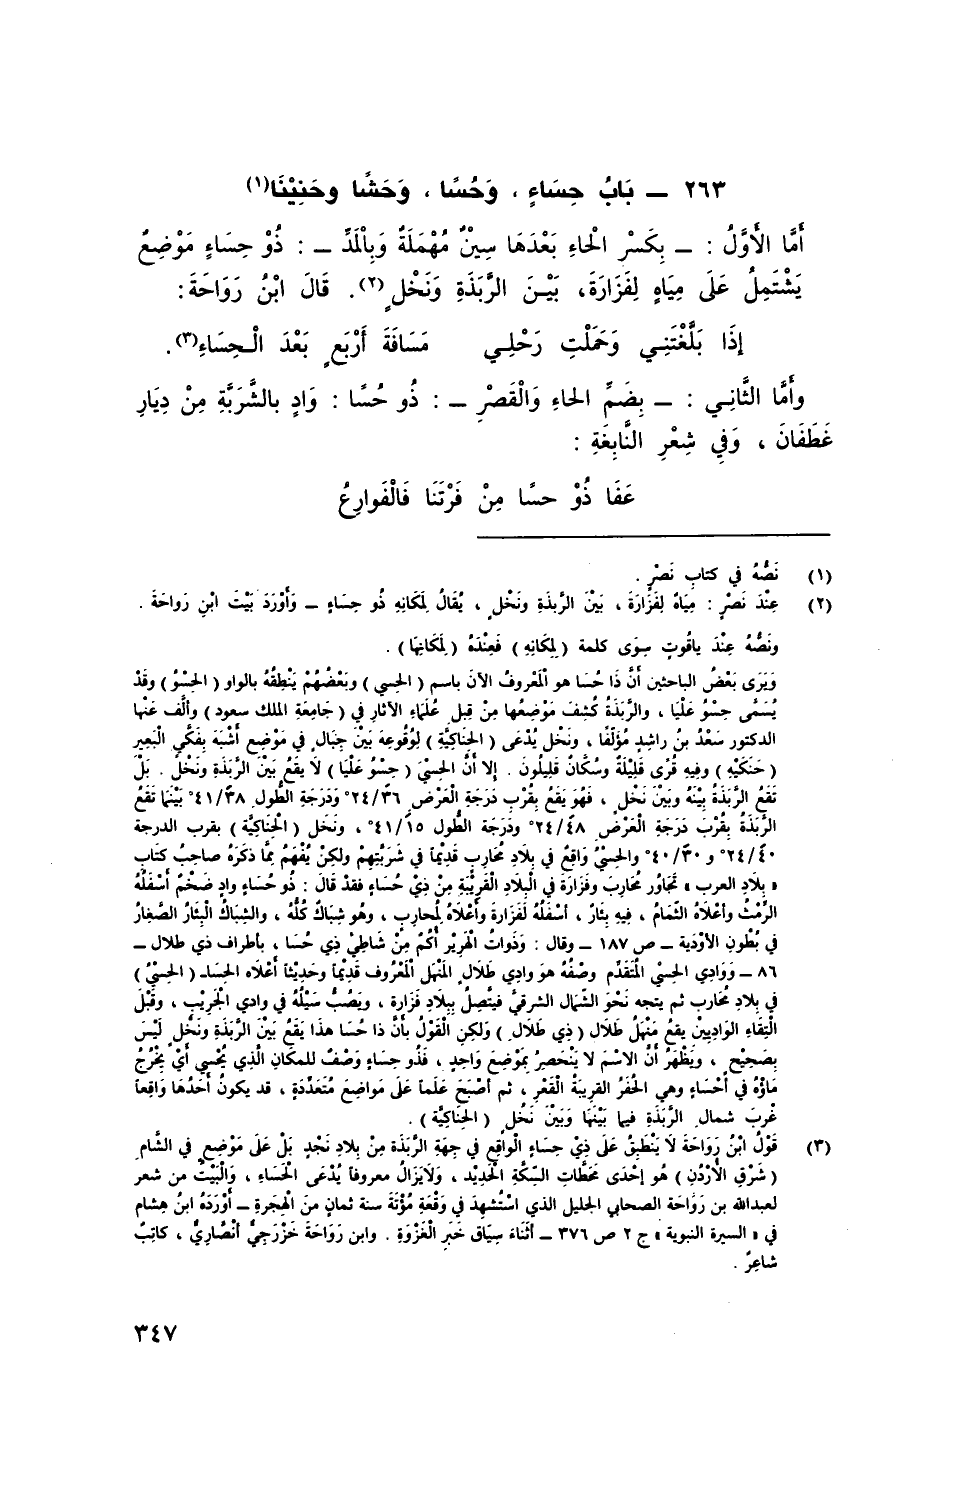 ٢٦٣ ــ بَابُ حِسَاءٍ ، وَحُسًا ، وَحَشًا وحَنِيْنَا(١)
أَمَّا الْأَوَّلُ : ــ بِكَسْرِ الْحَاءِ بَعْدَهَا سِيْنٌ مُهْمَلَةٌ وَبِالْمَدِّ ــ : ذُوْ حِسَاءٍ مَوْضِعٌ
يَشْتَمِلُ عَلَى مِيَاهٍ لِفَزَارَةَ، بَيْنَ الرَّبَذَةِ وَنَخْلٍ(٢). قَالَ ابْنُ رَوَاحَةَ:
إِذَا بَلَّغْتَنِي وَحَمَلْتِ رَحْلِي مَسَافَةَ أَرْبَعٍ بَعْدَ الْحِسَاءِ(٣).
وأَمَّا الثَّانِي : ــ بِضَمِّ الحَاءِ وَالْقَصْرِ ــ : ذُو حُسًا : وَادٍ بالشَّرَبَّةِ مِنْ دِيَارِ
غَطَفَانَ ، وَفي شِعْرِ النَّابِغَةِ :
عَفَا ذُوْ حسًا مِنْ فَرْتَنَا فَالْفَوارِعُ
(١) نَصُّهُ في كتابِ نَصْرٍ .
(٢) عِنْدَ نَصْرٍ : مِيَاهٌ لِفَزَارَةَ ، بَيْنَ الرَّبَذَةِ ونَخْلٍ ، يُقَالُ لِمَكَانِهِ ذُو حِسَاءٍ ــ وَأَوْرَدَ بَيْتَ ابْنِ رَواحَةَ .
ونَصُّهُ عِنْدَ ياقُوتٍ سِوَى كلمة (لِمكَانِهِ) فَعِنْدَهُ (لِمَكَانِهَا) .
وَيَرَى بَعْضُ الباحثين أَنَّ ذَا حُسَا هو الْمَعْروفُ الآنَ باسم (الحِسي) وبَعْضُهُمْ يَنْطِقُهُ بالواو (الحِسْوُ) وقَدْ
يُسَمَّى حِسْوُ عَلْيَا ، والرَّبَذَةُ كُشِفَ مَوْضِعُها مِنْ قِبَلِ عُلَمَاءِ الآثارِ في (جَامِعَةِ الملك سعود) وألَّف عَنْها
الدكتور سَعْدُ بنُ راشِدٍ مُؤَلَّفًا ، ونَخْل يُدْعَى (الحِنَاكِيَّة) لِوُقُوعِهِ بَيْنَ جِبَالٍ في مَوْضِعٍ أَشْبَهَ بِفَكَّي الْبَعِير
(حَنَكَيْهِ) وفيهِ قُرًى قَلِيْلَةٌ وسُكَّانٌ قَلِيلُونَ . إلا أنَّ الحِسْيَ (حِسْوُ عَلْيَا) لَا يَقَعُ بَيْنَ الرَّبَذَةِ ونَخْلٍ . بَلْ
تَقَعُ الرَّبَذَةُ بَيْنَهُ وبَيْنَ نَخْلٍ ، فَهُوَ يَقَعُ بِقُرْبِ دَرَجَةِ الْعَرْضِ ٣٦َ/٢٤° وَدَرَجَةِ الطُّول ٣٨َ/٤١° بَيْنَمَا تَقَعُ
الرَّبَذَةُ بِقُرْبِ دَرَجَةِ الْعَرْضِ ٤٨َ/٢٤° ودَرَجَةِ الطُّول ١٥َ/٤١° ، ونَخَل (الحِنَاكِيَّة) بقرب الدرجة
٤٠َ/٢٤° و ٣٠َ/٤٠° والحِسْيُ وَاقِعٌ في بِلَادِ مُحَارِبٍ قَدِيْماً في شَرَبَّتِهِمْ ولكِنْ يُفْهَمُ مِمَّا ذكَرَهُ صاحِبُ كتَابِ
«بِلَادِ العرب» تَجَاوُر مُحَارِب وفَزَارَةَ في الْبِلَادِ القَرِيْبَةِ مِنْ ذِيْ حُسَاءٍ فقدْ قَالَ : ذُو حُسَاءٍ وادٍ ضَخْمٌ أَسْفَلُهُ
الرِّمْثُ وأعْلاهُ الثُّمَامُ ، فيهِ بِئَارٌ ، أسْفَلُهُ لَفَزَارةَ وأعْلاهُ لِمُحارِبٍ ، وهُو شِبَاكٌ كُلُّهُ ، والشِّبَاكُ الْبِئَارُ الصِّغَارُ
في بُطُونِ الأَوْدية ــ ص ١٨٧ ــ وقال : وَذَواتُ الْهَرِيْرِ أُكَمٌ مِنْ شَاطِئِ ذِي حُسَا ، بأطرافِ ذي طلال ــ
٨٦ ــ وَوَادِي الحِسْي الْمُتَقَدِّم وصْفُهُ هوَ وادِي طَلَالٍ الْمَنْهَلِ الْمَعْروف قَدِيْماً وَحَدِيْثاً أعْلاه الحِسَاـ (الحِسْيُ)
في بِلادِ مُحَارب ثم يتجه نَحْوَ الشَّمال الشرقيِّ فيتَّصِلُ بِبِلَادِ فَزارة ، ويَصُبُّ سَيْلُهُ في وادي الجَرِيْبِ ، وقَبْلَ
الْتِقَاءِ الْوَادِيينْ يقعُ مَنْهَلُ طَلَال (ذِي طَلَالٍ) وَلكِنِ الْقَوْلُ بأنَّ ذا حُسَا هذا يَقَعُ بَيْنَ الرَّبَذَةِ ونَخْلٍ لَيْسَ
بِصَحِيْحٍ ، ويَظْهَرُ أَنَّ الاسْمَ لا يَنْحَصِرُ بِمَوْضِعٍ وَاحِدٍ ، فَذُو حِسَاءٍ وَصْفٌ للمكَانِ الَّذِي يُحْسِي أَيْ يَخْرُجُ
مَاؤُهُ في أحْسَاءٍ وهي الحُفَرُ القريبَةُ الْقَعْرِ ، ثم أصْبَحَ عَلَماً عَلَى مَواضِعَ مُتَعَدِّدَةٍ ، قد يكونُ أَحَدُهَا وَاقِعاً
غَربَ شمالِ الرَّبَذَةِ فيما بَيْنَها وَبَيْنَ نَخْلٍ (الحِنَاكِيَّة) .
(٣) قَوْلُ ابْنُ رَوَاحَةَ لَا يَنْطَبِقُ عَلَى ذِيْ حِسَاءٍ الْوَاقِعِ في جِهَةِ الرَّبَذَة مِنْ بِلادِ نَجْدٍ بَلْ عَلَى مَوْضِعٍ في الشَّامِ
(شَرْقِ الأُرْدُنِ) هُوَ إحْدَى مَحَطَّاتِ السِّكَّةِ الحْدِيْدِ ، وَلَايَزَالُ معروفاً يُدْعَى الْحَسَاء ، وَالْبَيْتُ من شعر
لعبدالله بن رَوَاحَةَ الصحابي الجليل الذي اسْتُشْهِدَ في وَقْعَةِ مُؤْتَةَ سنة ثمانٍ منَ الْهِجرةِ ــ أَوْرَدَهُ ابنُ هِشام
في «السيرة النبوية» ج ٢ ص ٣٧٦ ــ أثْنَاءَ سِيَاق خَبَرِ الْغَزْوَةِ . وابن رَوَاحَةَ خَزْرَجِيٌّ أنْصَارِيٌّ ، كاتِبٌ
شاعِرٌ .
٣٤٧